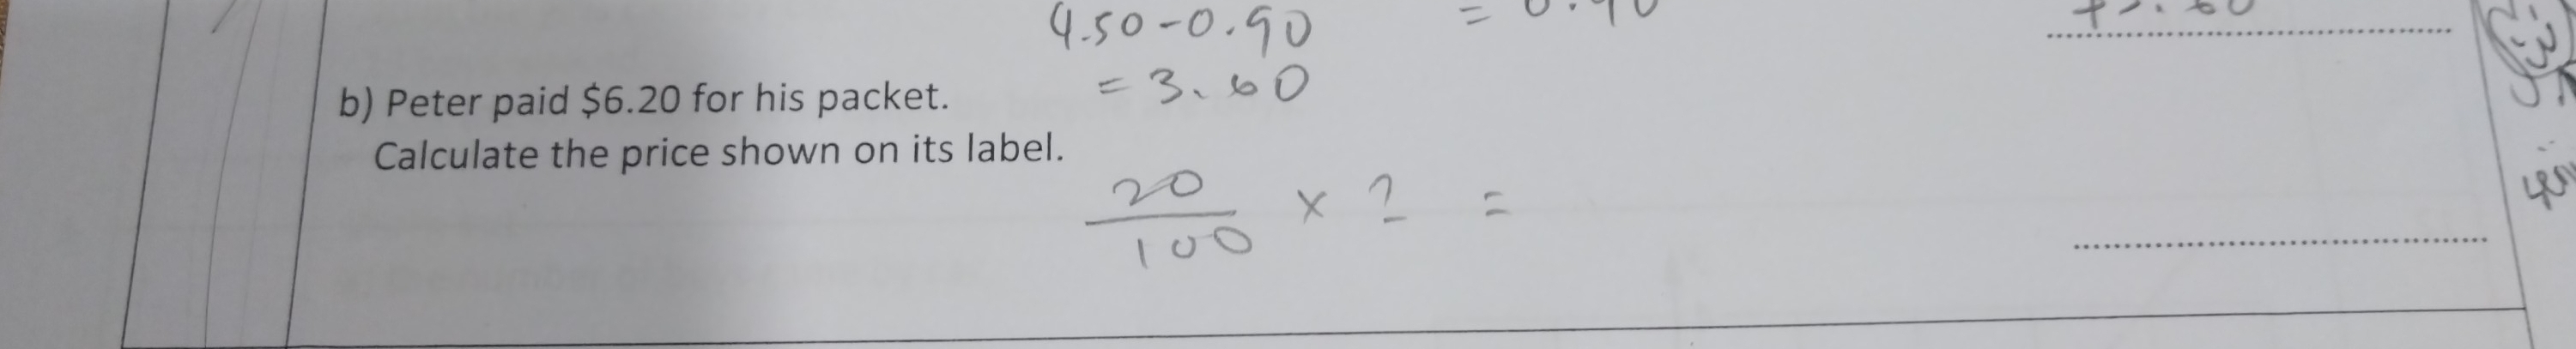 4.50-0.90
b) Peter paid $6.20 for his packet.
= 3.60
Calculate the price shown on its label.
20
100
× ? =